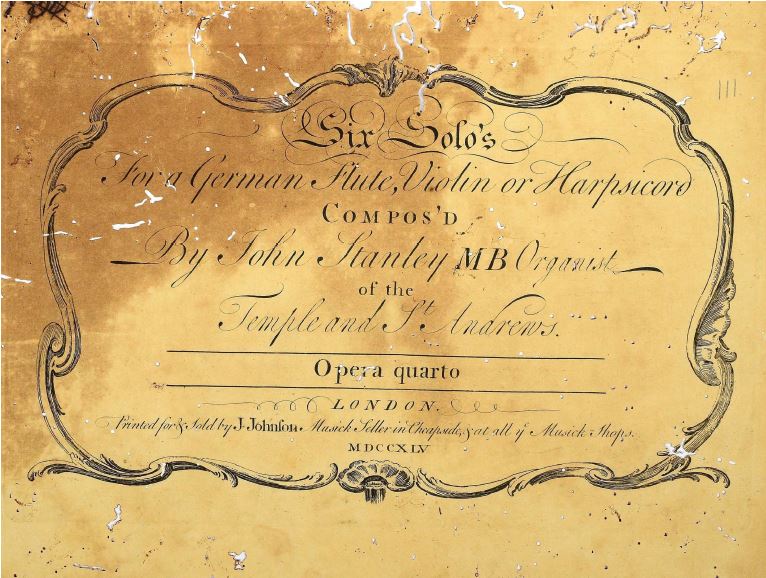 Six Solo's
For a German Flute, Violin or Harpsicord
COMPOS'D
By John Stanley MB Organist
of the
Temple and St Andrews.
Opera quarto
LONDON.
Printed for & Sold by J. Johnson Musick Seller in Cheapside, & at all ye Musick Shops.
MDCCXLV